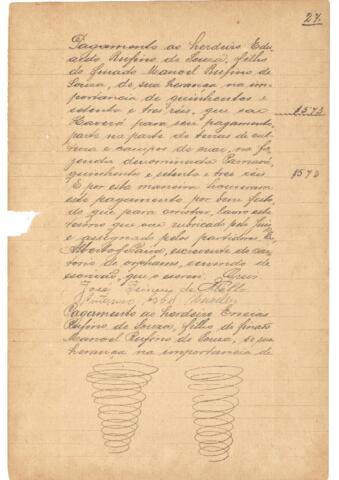 27.
Pagamento ao herdeiro Edu-
aldo Rufino de Souza, filho
do finado Manoel Rufino de
Souza, de sua herança na im-
portancia de quinhentos e
setenta e tres réis, que sae $573
Haverá para seu pagamento,
parte na parte de terras de cul-
tura e campos de criar, na fa-
zenda denominada
quinhentos e setenta e tres reis. $573
E por esta maneira houveram
este pagamento por bem feito,
do que para constar, lavro este
termo que vae rubricado pelo Juiz
e assignado pelos partidores. Eu,
Alberto escrevente do car-
torio de orphãos, servindo de
escrivão, que o escrevi.
José de Mello
Antonio
Pagamento ao herdeiro Enéas
Rufino de Souza, filho do finado
Manoel Rufino de Souza, de sua
herança na importancia de